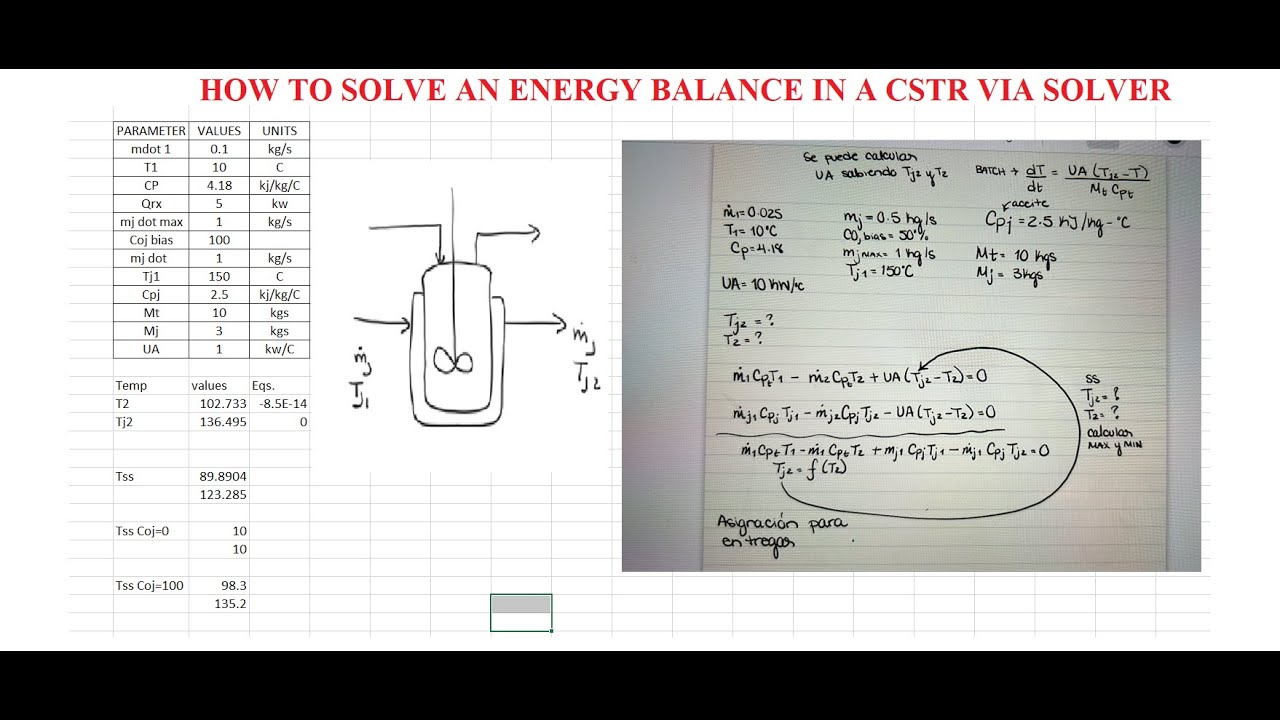 HOW TO SOLVE AN ENERGY BALANCE IN A CSTR VIA SOLVER
PARAMETER VALUES UNITS
mdot 1 0.1 kg/s
T1 10 C
CP 4.18 kj/kg/C
Qrx 5 kw
mj dot max 1 kg/s
Coj bias 100
mj dot 1 kg/s
Tj1 150 C
Cpj 2.5 kj/kg/C
Mt 10 kgs
Mj 3 kgs
UA 1 kw/C
Temp values Eqs.
T2 102.733 -8.5E-14
Tj2 136.495 0
Tss 89.8904
123.285
Tss Coj=0 10
10
Tss Coj=100 98.3
135.2
ṁj
Tj1
ṁj
Tj2
Se puede calcular
UA sabiendo Tj2 y T2
BATCH → dT/dt = UA(Tj2-T)/Mt Cpt
aceite
ṁ1=0.025
T1=10°C
Cp=4.18
UA=10 kW/°C
mj=0.5 kg/s
COj bias=50%
ṁj MAX=1 kg/s
Tj1=150°C
Cpj=2.5 kJ/kg-°C
Mt=10 kgs
Mj=3kgs
Tj2=?
T2=?
ṁ1CptT1 - ṁ2CptT2 + UA(Tj2-T2)=0
ṁj1CpjTj1 - ṁj2CpjTj2 - UA(Tj2-T2)=0
ṁ1CptT1 - ṁ1CptT2 + ṁj1CpjTj1 - ṁj1CpjTj2=0
Tj2=f(T2)
SS
Tj2=?
T2=?
calcular
MAX y MIN
Asignación para
entregar